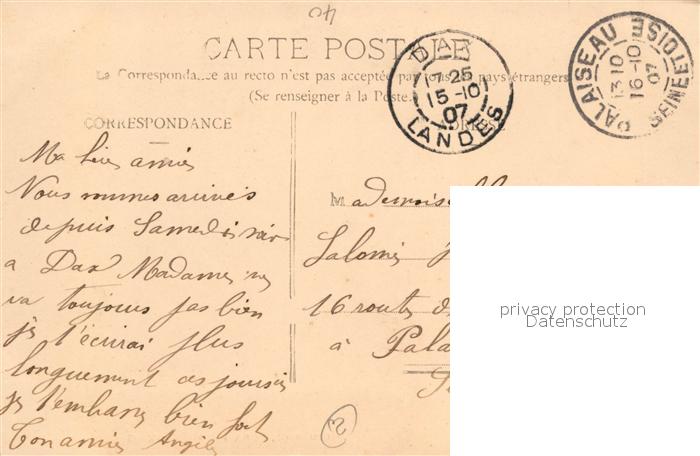 40
CARTE POSTALE
La Correspondance au recto n'est pas acceptée par tous les pays étrangers
(Se renseigner à la Poste
DAX
17 25
15-10
07
LANDES
PALAISEAU
13 10
16-10
07
SEINE ET OISE
CORRESPONDANCE
ADRESSE
Ma bien amie
Nous sommes arrivés
depuis Samedi soir
a Dax Madame ne
va toujours pas bien
je t'écrirai plus
longuement ces jours ci
je t'embrasse bien fort
Ton amie Angèle
Mademoiselle
Salomé
16 route d
à Pala
S
privacy protection
Datenschutz